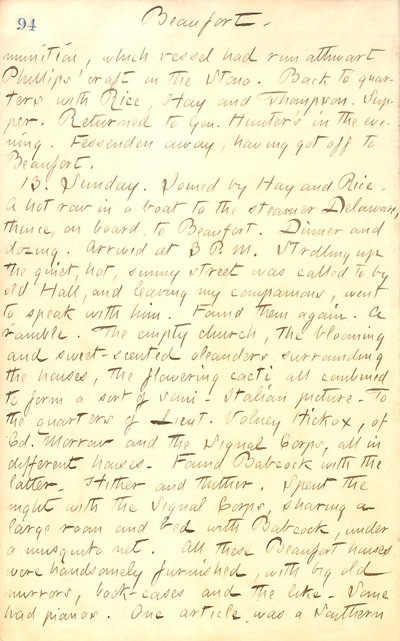 94
Beaufort.
munition, which vessel had run athwart
Phillips' craft in the Stono. Back to quar-
ters with Rice, Hay and Thompson. Sup-
per. Returned to Gen. Hunter's in the eve-
ning. Fessenden away, having got off to
Beaufort.
13. Sunday. Joined by Hay and Rice.
A hot row in a boat to the steamer Delaware,
thence, on board, to Beaufort. Dinner and
dozing. Arrived at 3 P.M. Strolling up
the quiet, hot, sunny street was called to by
old Hall, and leaving my companions, went
to speak with him. Found them again. A
ramble. The empty church, the blooming
and sweet-scented oleanders surrounding
the houses, the flowering cacti, all combined
to form a sort of semi-Italian picture. To
the quarters of Lieut. Volney Hickox, of
Ed. Morrow and the Signal Corps, all in
different houses. Found Babcock with the
latter. Hither and thither. Spent the
night with the Signal Corps, sharing a
large room and bed with Babcock, under
a musquito net. All these Beaufort houses
were handsomely furnished, with big old
mirrors, book-cases and the like. Some
had pianos. One article was a Southern